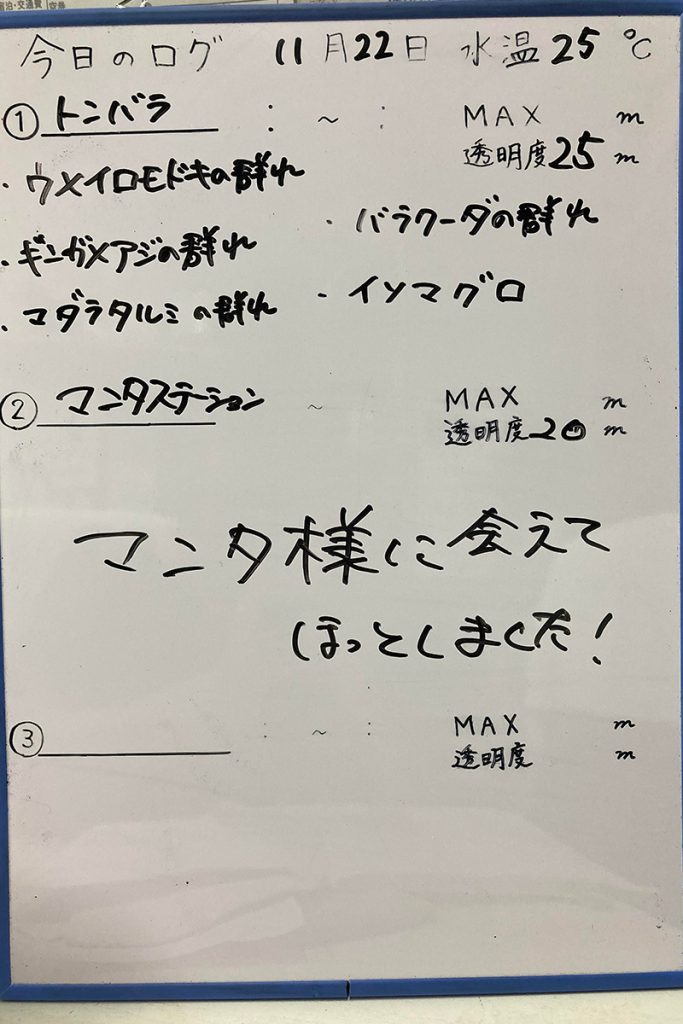 宿泊・交通費
今日のログ 11月22日 水温25℃
① トンバラ : ~ : MAX m
透明度25m
・ウメイロモドキの群れ
・バラクーダの群れ
・ギンガメアジの群れ
・マダラタルミの群れ ・イソマグロ
② マンタステーション ~ MAX m
透明度20m
マンタ様に会えて
ほっとしました!
③ : ~ : MAX m
透明度 m